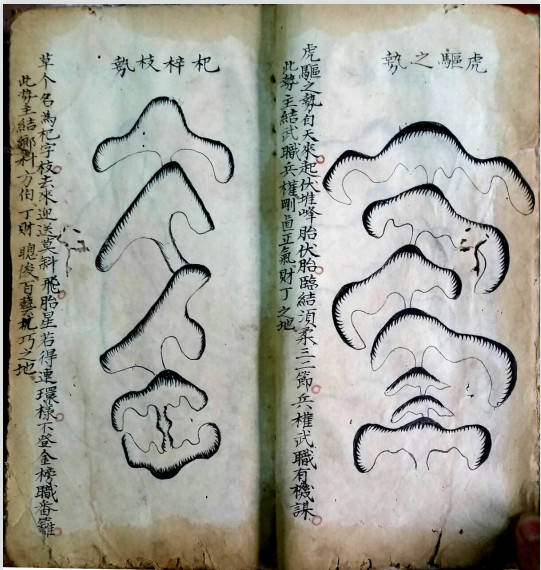 虎驅之勢
虎驅之勢自天來起伏堆峰胎伏胎臨結須柔三二節兵權武職有機謀
此勢主結武職兵權剛直正氣財丁之地
杞梓枝勢
草个名為杞字枝去來迎送莫斜飛胎星若得連環樣不登金榜職番籬
此勢主結鄉科方伯丁財聰俊百藝机巧之地